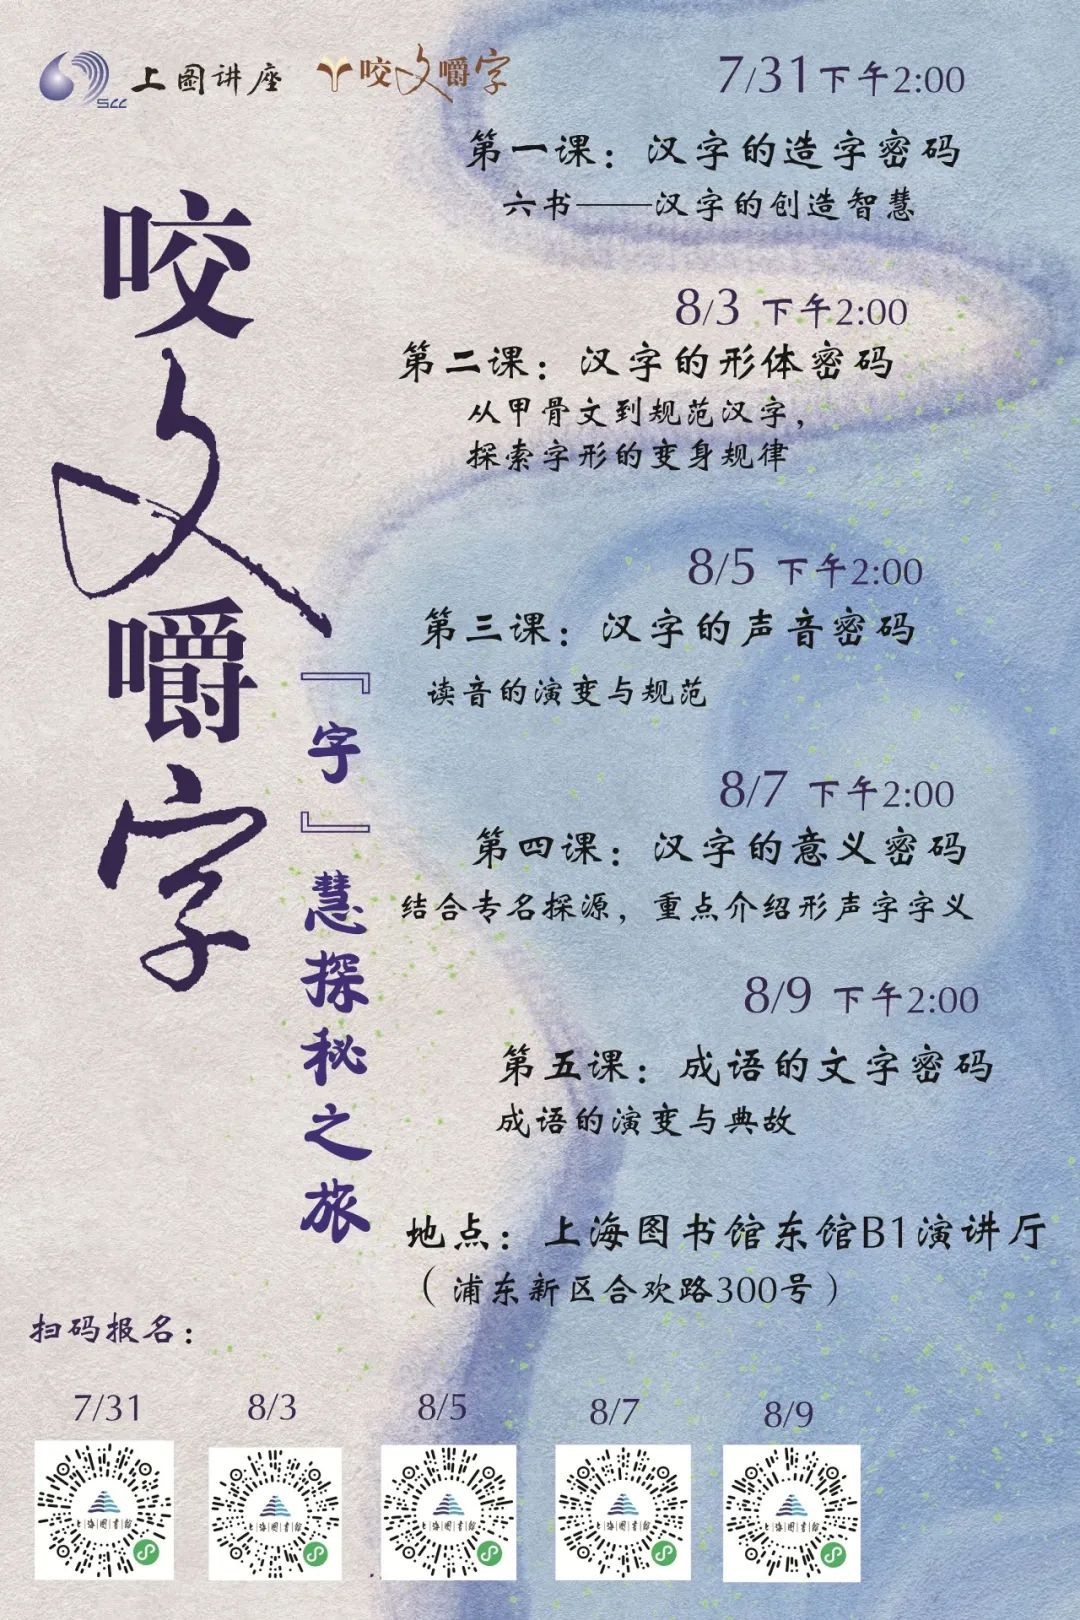 SCC
上图讲座
咬文嚼字
咬文嚼字
『字』慧探秘之旅
7/31下午2:00
第一课：汉字的造字密码
六书——汉字的创造智慧
8/3 下午2:00
第二课：汉字的形体密码
从甲骨文到规范汉字，
探索字形的变身规律
8/5 下午2:00
第三课：汉字的声音密码
读音的演变与规范
8/7 下午2:00
第四课：汉字的意义密码
结合专名探源，重点介绍形声字字义
8/9 下午2:00
第五课：成语的文字密码
成语的演变与典故
地点：上海图书馆东馆B1演讲厅
（浦东新区合欢路300号）
扫码报名：
7/31
8/3
8/5
8/7
8/9
上|海|图|书|馆
上|海|图|书|馆
上|海|图|书|馆
上|海|图|书|馆
上|海|图|书|馆